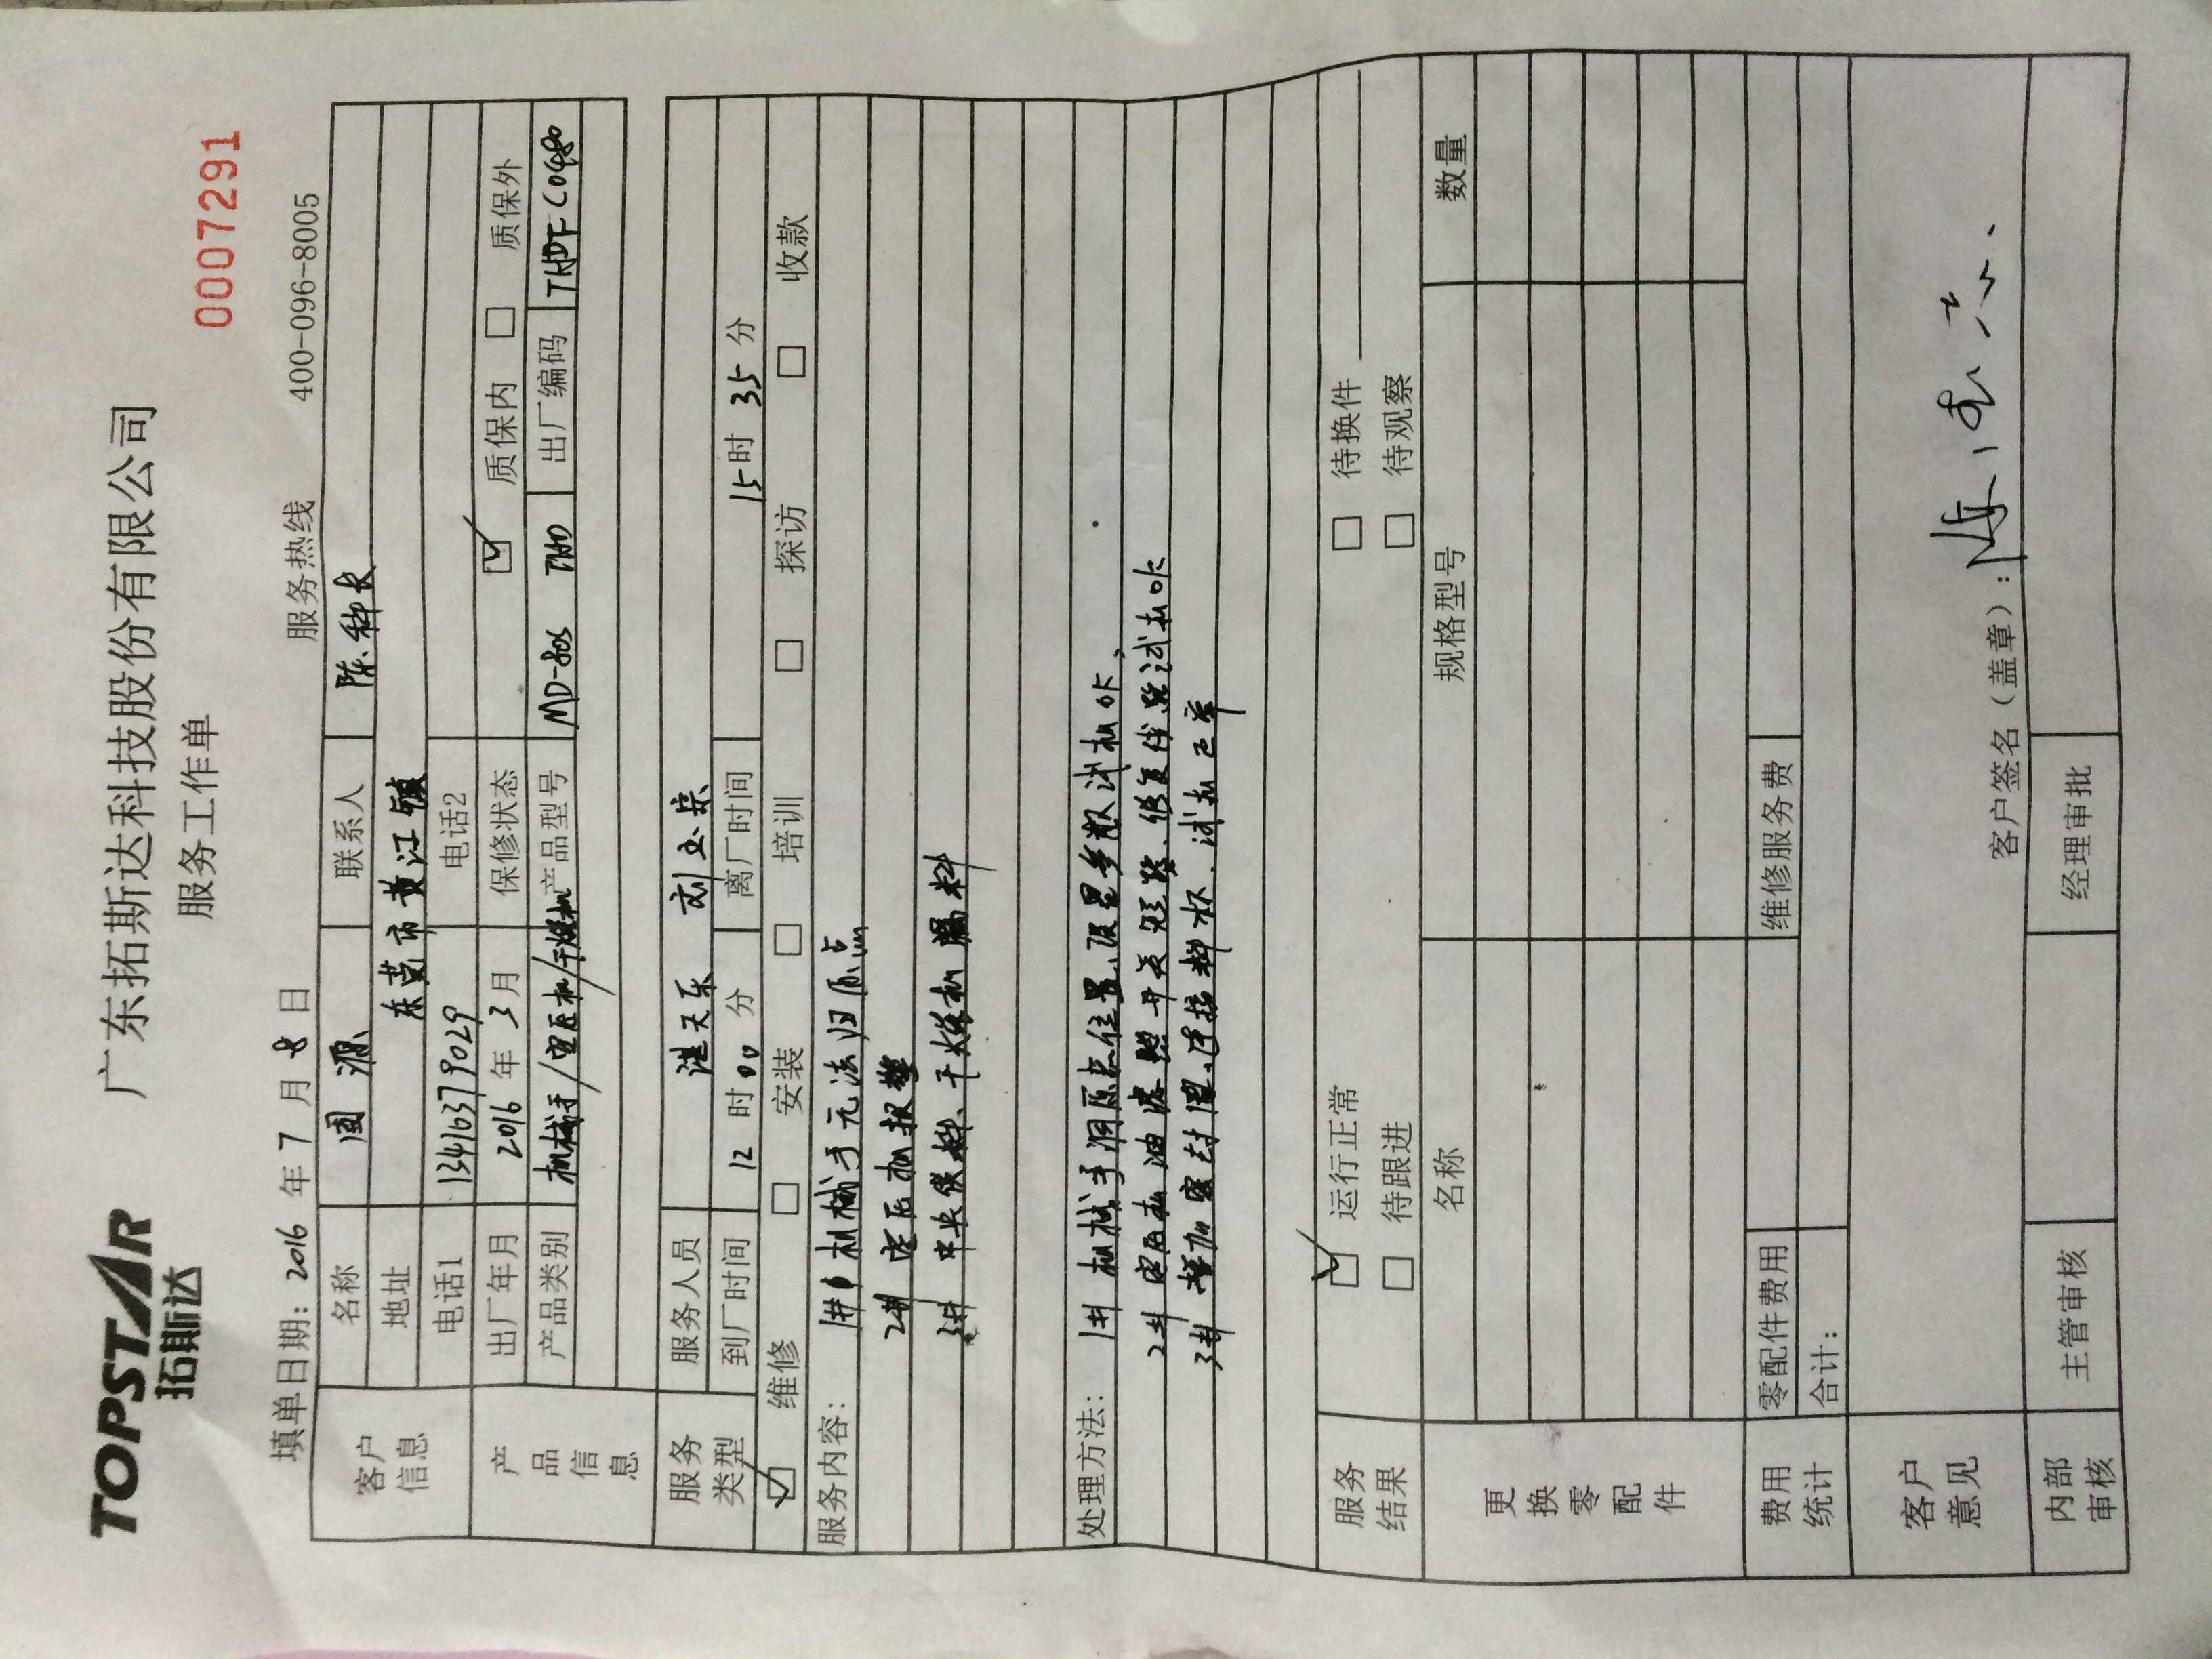 TOPSTAR
拓斯达
广东拓斯达科技股份有限公司
服务工作单
0007291
填单日期: 2016 年 7 月 8 日 服务热线 400-096-8005
客户信息
名称 国源 联系人 陈科长
地址 东莞市黄江镇
电话1 13416379029 电话2
产品信息
出厂年月 2016 年 3 月 保修状态 ☑ 质保内 □ 质保外
产品类别 机械手/空压机/干燥机 产品型号 MD-80S 出厂编码
服务类型
服务人员 湛天乐 刘玉宗
到厂时间 12 时 00 分 离厂时间 15 时 35 分
☑ 维修 □ 安装 □ 培训 □ 探访 □ 收款
服务内容: 1# 机械手无法归原点
2# 空压机报警
3# 中央供料、干燥机漏料
处理方法: 1# 机械手调原点位置、设置参数试机OK
2# 空压机油 开关短路、恢复 试机OK
3# 增加密封圈、连接料杯、试机正常
服务结果
☑ 运行正常 □ 待换件
□ 待跟进 □ 待观察
更换零配件
名称 规格型号 数量
费用统计
零配件费用 维修服务费
合计:
客户意见
客户签名（盖章）:
内部审核
主管审核 经理审批